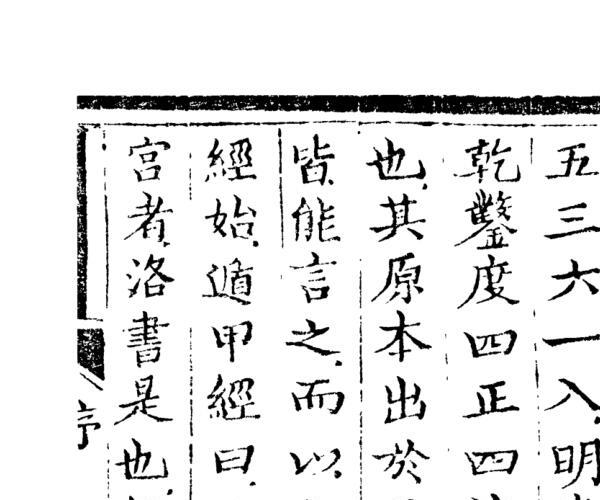 五三六一八明
乾鑿度四正四
也其原本出於
皆能言之而以
經始遁甲經曰
宮者洛書是也
序